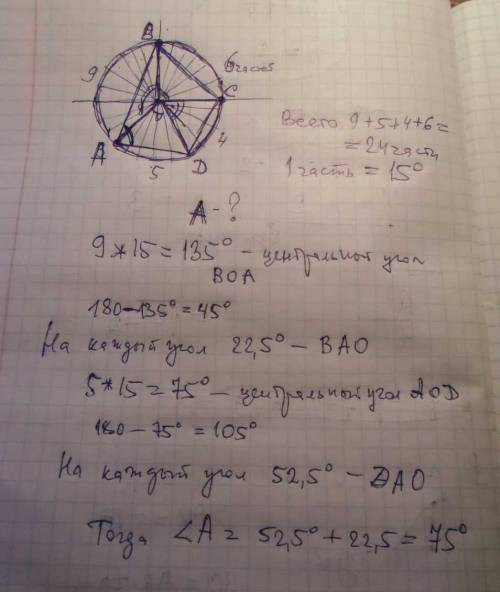 B
9
6 частей
C
O
A
4
D
5
Всего 9+5+4+6=
= 24 части
1 часть = 15°
A - ?
9 * 15 = 135° - центральной угол
BOA
180-135° = 45°
На каждый угол 22,5° - BAO
5*15 = 75° - центральной угол AOD
180 - 75° = 105°
На каждый угол 52,5° - DAO
Тогда ∠A = 52,5° + 22,5 = 75°